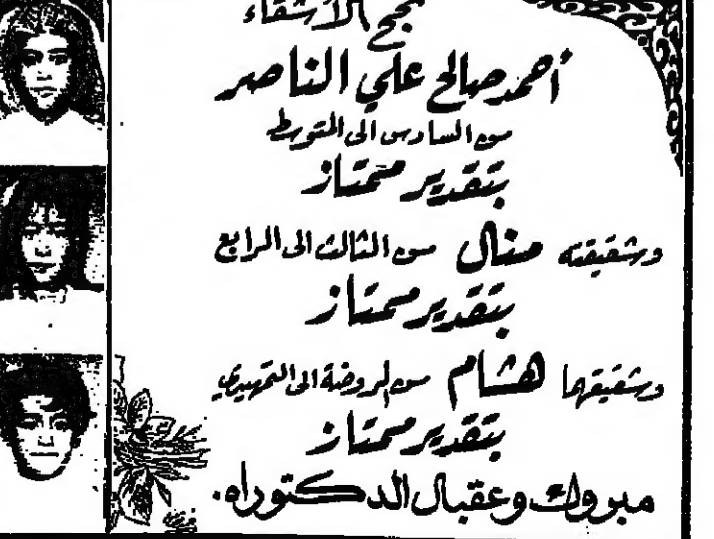 نجح الأشقاء
أحمد صالح علي الناصر
من السادس الى المتوسط
بتقدير ممتاز
وشقيقته منال من الثالث الى الرابع
بتقدير ممتاز
وشقيقهما هشام من الروضة الى التمهيدي
بتقدير ممتاز
مبروك وعقبال الدكتوراه.